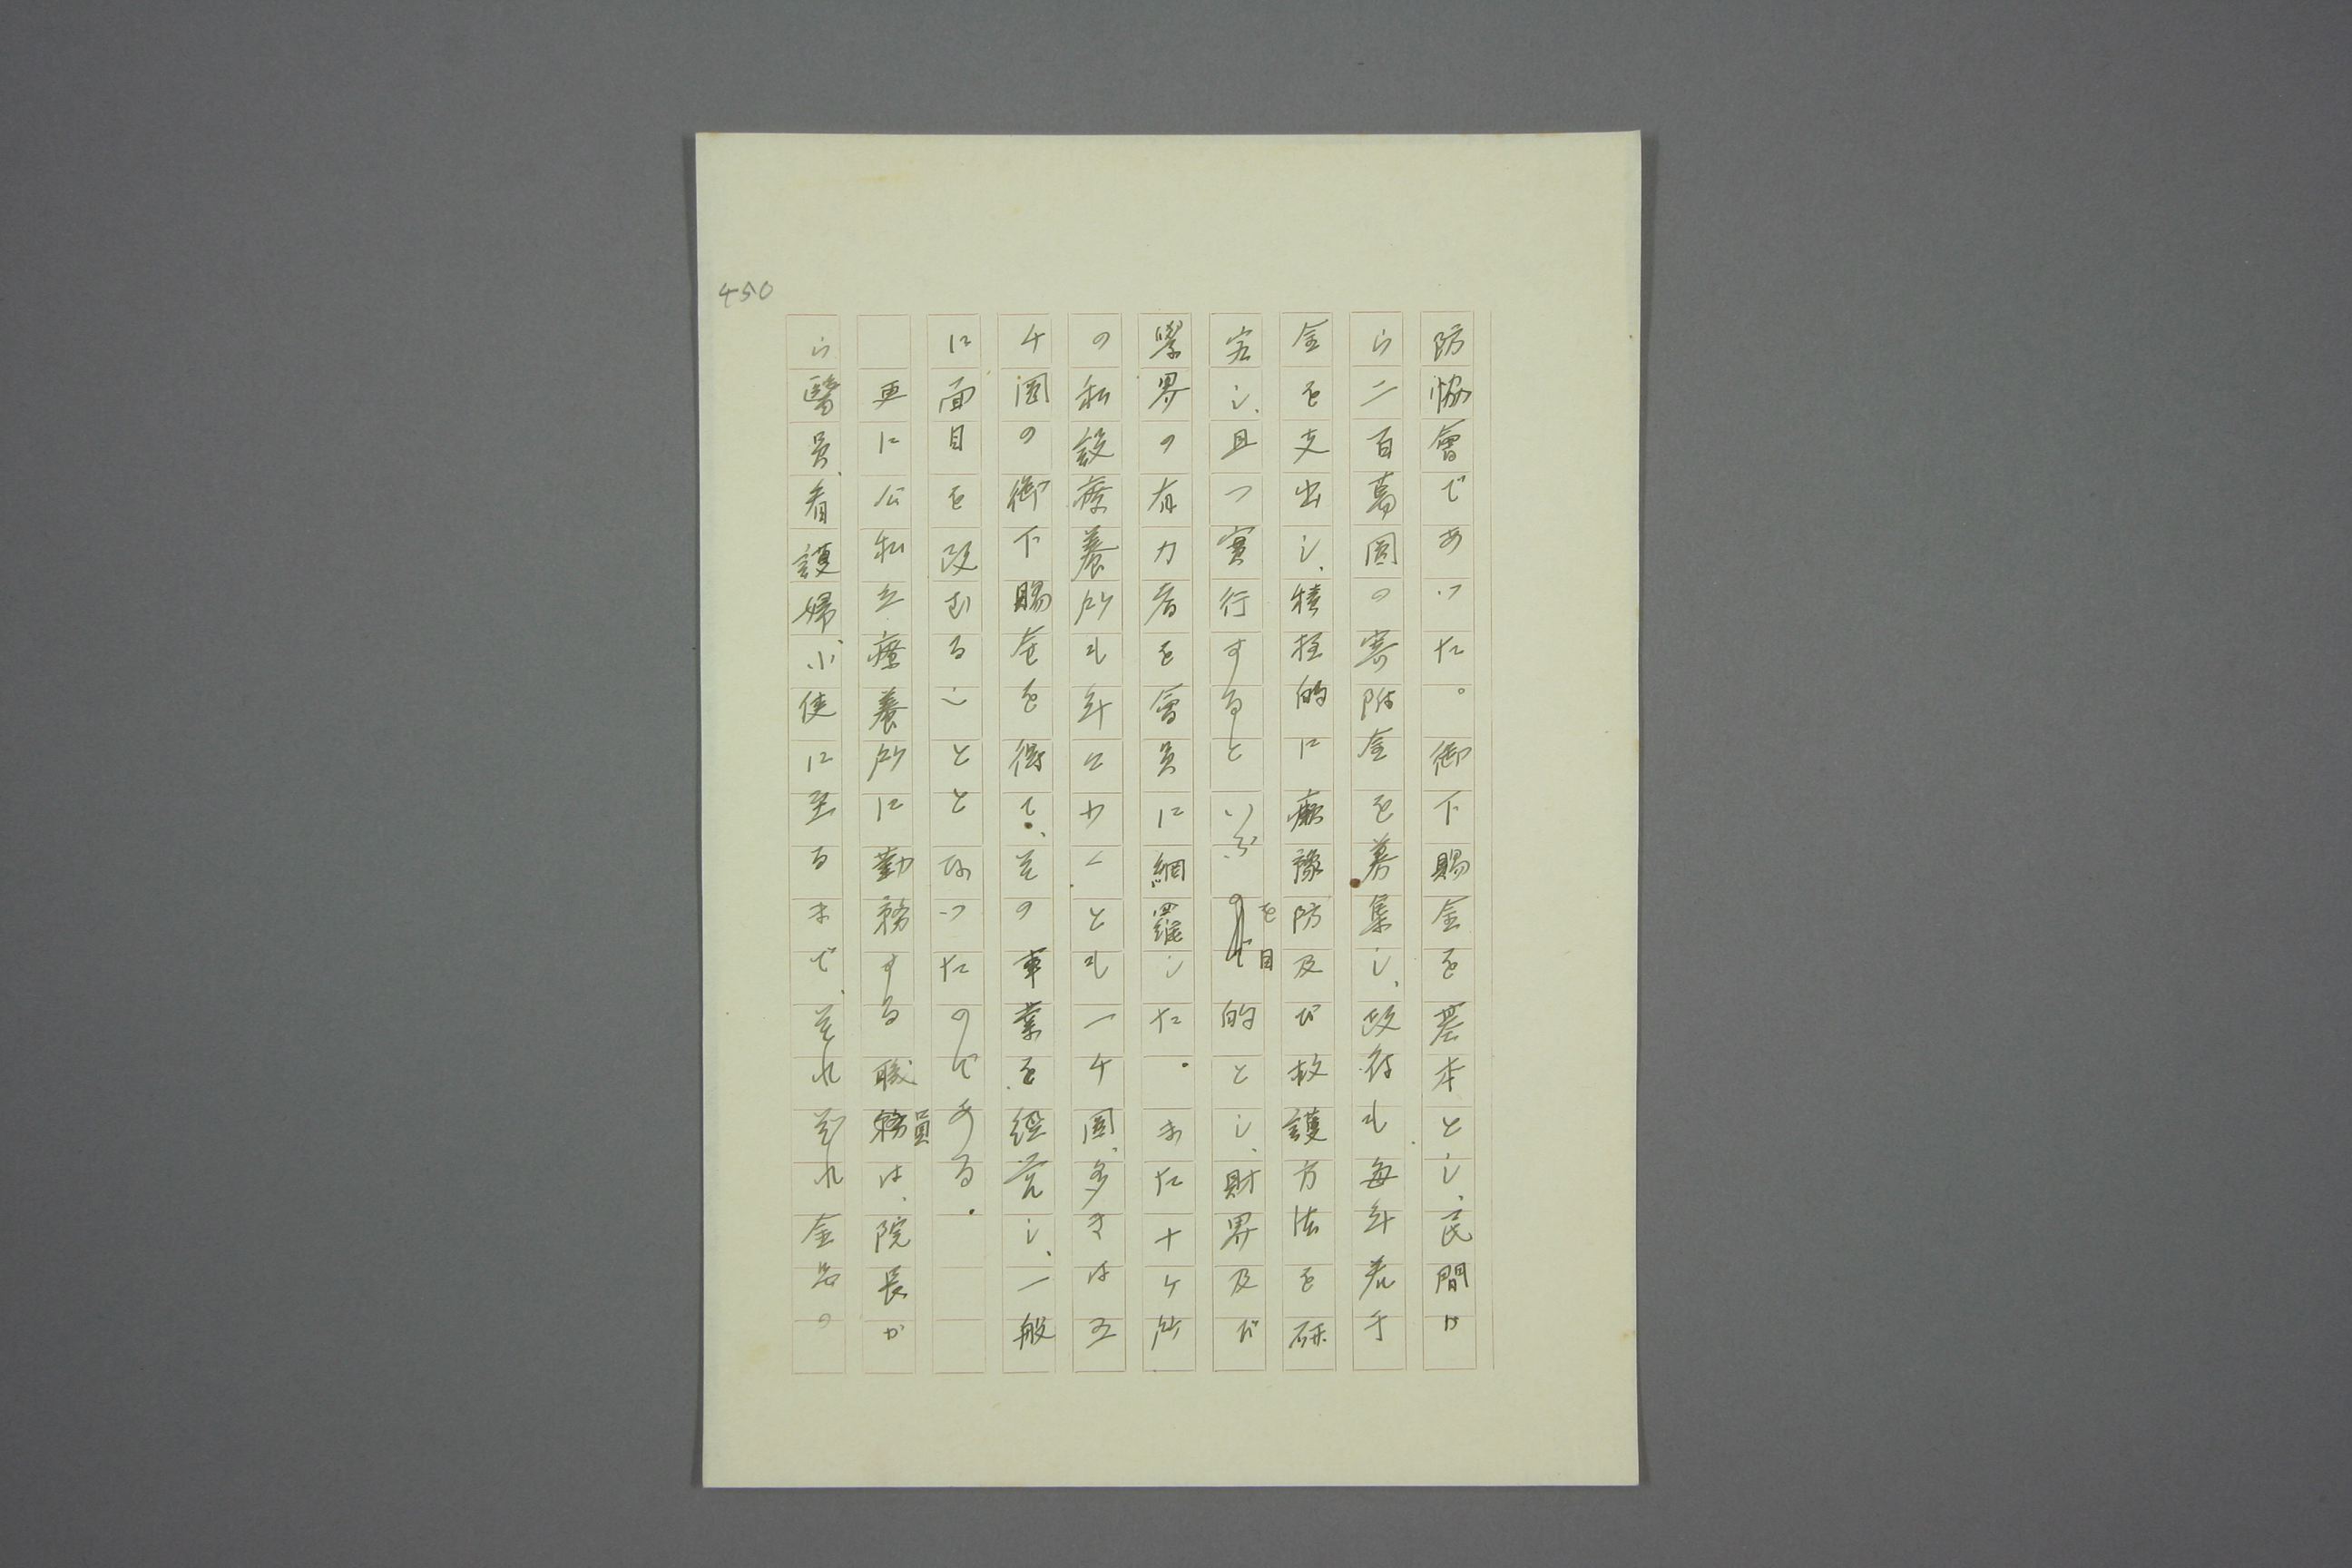 450
防協會であつた。御下賜金を基本とし、民間か
ら二百萬圓の寄附金を募集し、政府も毎年若干
金を支出し、積極的に癩豫防及び救護方法を研
究し、且つ實行するといふを目的とし、財界及び
學界の有力者を會員に網羅した。また十ケ所
の私設療養所も年に少くとも一千圓、多きは五
千圓の御下賜金を得て、その事業を經営し、一般
に面目を改むることとなつたのである。
更に公私立療養所に勤務する職員は、院長か
ら醫員、看護婦、小使に至るまで、それぞれ金品の